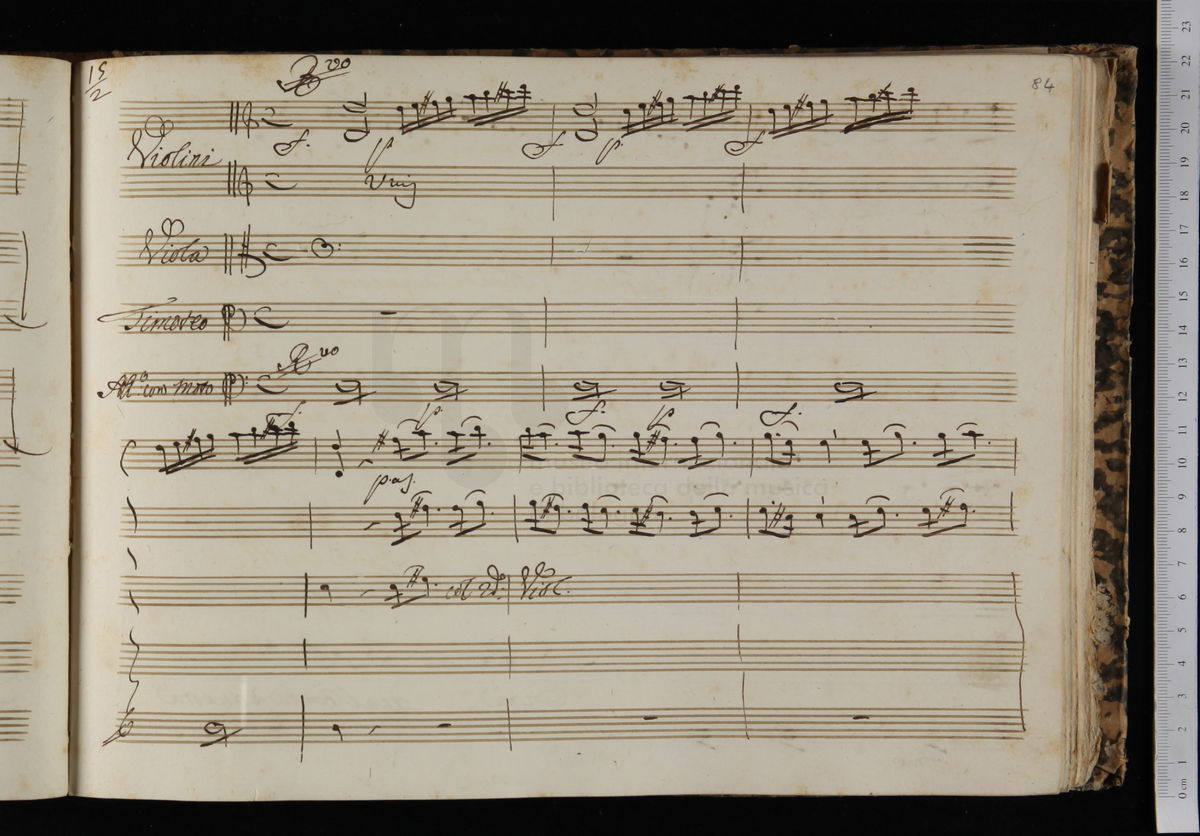 15
2
84
Violini
f. p f p. f
Unis
Viola
Timoteo
All.º con moto
f. p. f. p f.
p.as.
col 2do. Viol.
e biblioteca della musica
23
22
21
20
19
18
17
16
15
14
13
12
11
10
9
8
7
6
5
4
3
2
1
0 cm